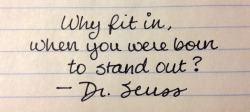 Why fit in,
when you were born
to stand out?
- Dr. Seuss